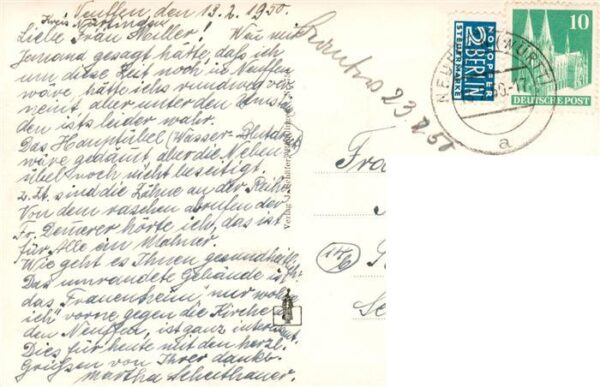 Neuffen, den 13.2.1950.
Kreis Nürtingen
Liebe Frau Müller! Wenn mir
Jemand gesagt hätte, daß ich
um diese Zeit noch in Neuffen
wäre, hätte ichs rundweg ver-
neint, aber unter den Umstän-
den ists leider wahr.
Das Hauptübel (Wasser-Blutdruck)
wäre gedämt, aber die Neben-
übel noch nicht beseitigt.
z. Zt. sind die Zähne an der Reihe
Von dem raschen abrufen der
Fr. hörte ich, das ist
für Alle ein Mahner.
Wie geht es Ihnen gesundheitl.
Das umrandete Gebäude ist
das "Frauenheim", nur wohne
ich vorne gegen die Kirche
den Neuffen, ist ganz interessant.
Dies für heute mit den herzl.
Grüßen von Ihrer dankb.
Martha Scheithauer.
23 2 50
NOTOPFER
2 BERLIN
STEUERMARKE
10
DEUTSCHE POST
NEUFFEN (WÜRTT)
a
Verlag
Fra
(14b)